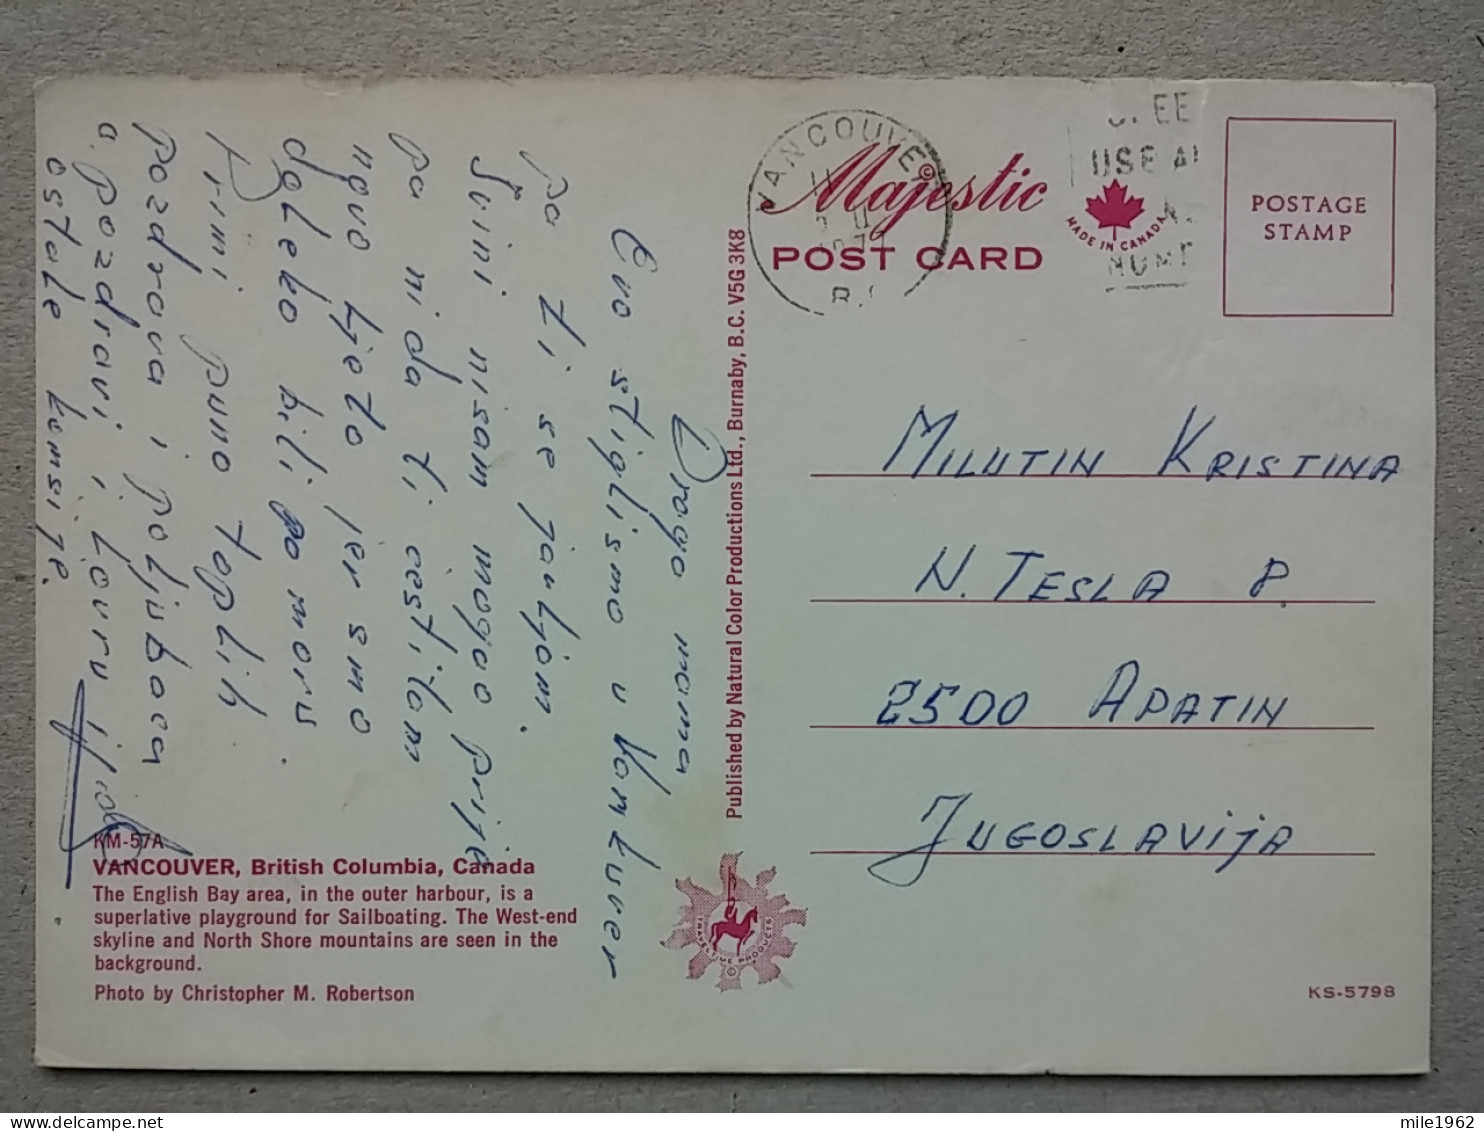 Drago mama
Evo stigli smo u Vankuver
pa ti se javljam.
nisam mogao prije
pa ni da ti cestitam
novo ljeto jer smo
daleko bili po moru.
Primi puno toplih
pozdrava i poljubaca
a pozdravi i Lovru i
ostale komsije.
KM-57A
VANCOUVER, British Columbia, Canada
The English Bay area, in the outer harbour, is a
superlative playground for Sailboating. The West-end
skyline and North Shore mountains are seen in the
background.
Photo by Christopher M. Robertson
Published by Natural Color Productions Ltd., Burnaby, B.C. V5G 3K8
TRAVELTIME PRODUCTS
©
VANCOUVE
B.C
Majestic©
POST CARD
MADE IN CANADA
EE
USE
POSTAGE
STAMP
MILUTIN KRISTINA
N. TESLA 8.
2500 APATIN
JUGOSLAVIJA
KS-5798
mile1962